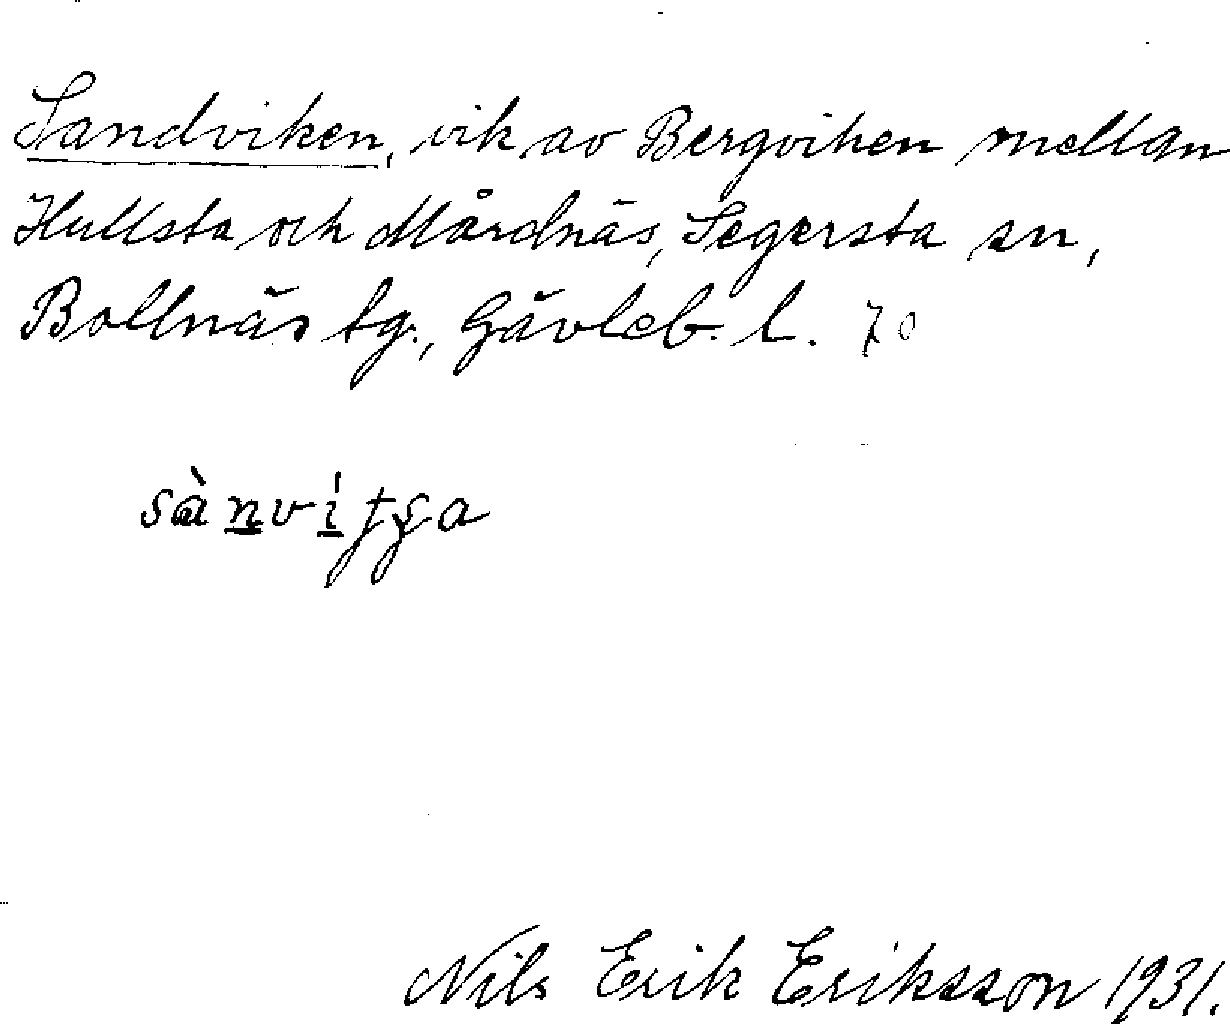 Sandviken, vik av Bergviken mellan
Hullsta och Mårdnäs, Segersta sn,
Bollnäs tg., Gävleb. l. 70
Nils Erik Eriksson 1931.